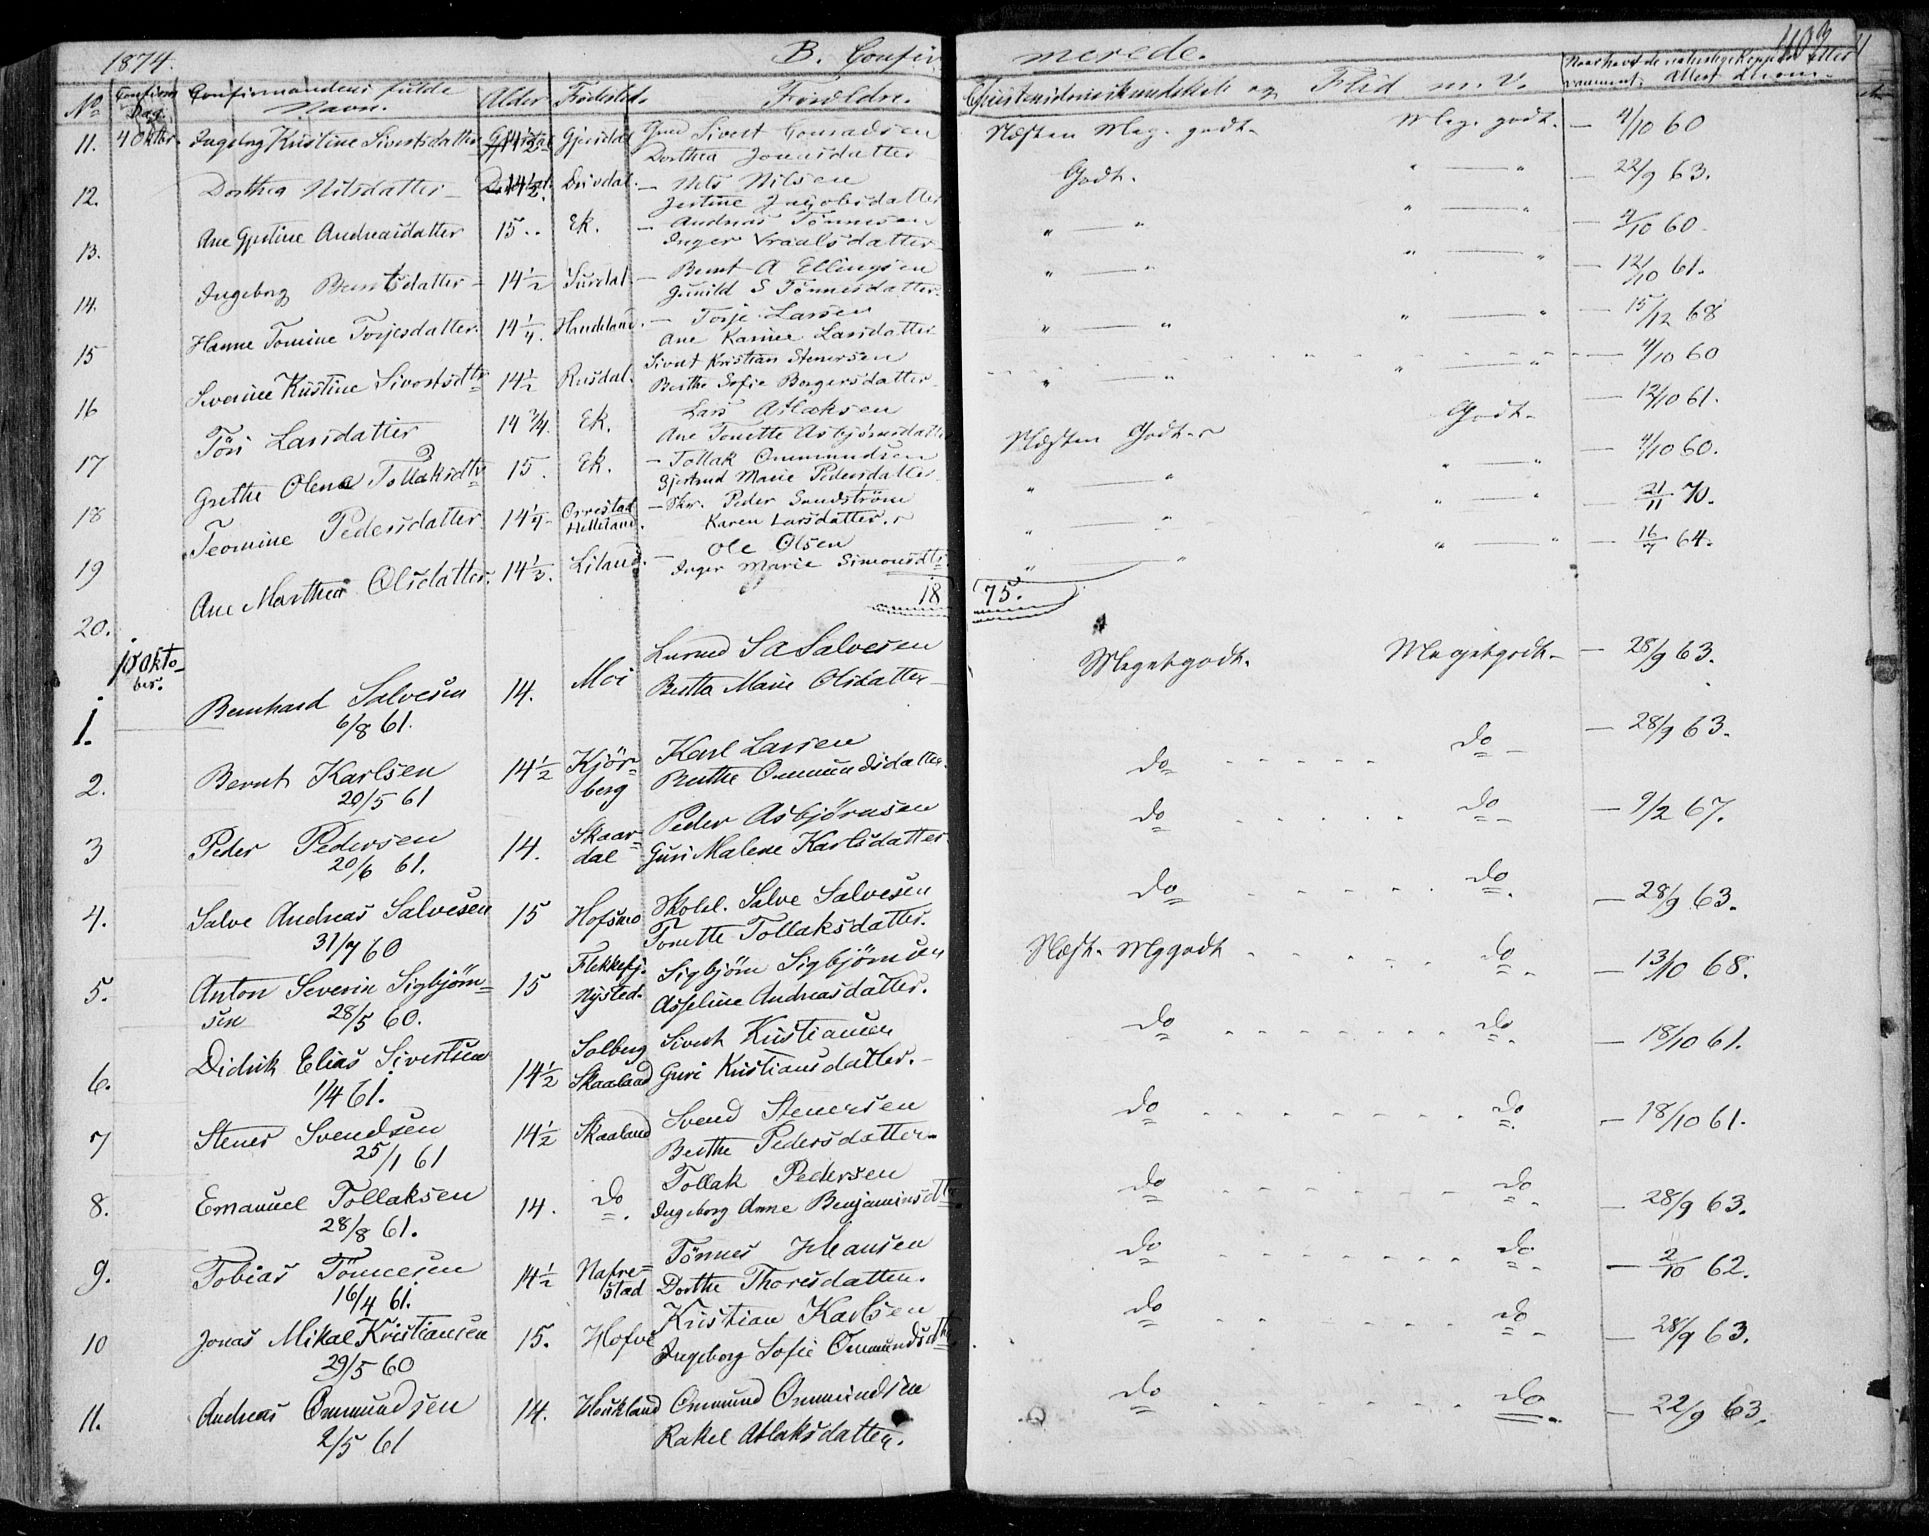 1874. B. Confirmerede. 103
No Confirm. Dag. Confirmandens fulde Navn. Alder. Fødested. Forældre. Christendomskundskab og Flid m. V. Naar havt de naturlige Kopper eller vaccineret. Attest derom.
11. 4 Oktbr. Ingeborg Kristine Sivertsdatter 14 1/2 Gjersdal Gmd Sivert Conradsen Næsten Meg. godt. Meg. godt. — 4/10 60
Dorthea Jonasdatter
12. Dorthea Nilsdatter 14 1/2. Drivdal. — Nels Nilsen Godt. " — " — 22/9 63.
Jertine Jacobsdatter
13. Ane Gjertine Andreasdatter 15.. Ek. — Andreas Tönnesen " — " " — " — 4/10 60.
Inger Vraalsdatter
14. Ingeborg Berntsdatter 14 1/2 Surdal — Bernt A Ellingsen " — " " — " — 12/10 61.
Gunild S Tönnesdatter
15 Hanne Tomine Torjesdatter. 14 1/4. Handeland. — Torje Larsen " — " " — " — 15/12 68
Ane Karine Larsdatter
16 Severine Kristine Sivertsdtr 14 1/2 Rusdal. Sivert Kristian Stenersen " — " " — " — 4/10 60
Berthe Sofie Borgersdatter
17 Töri Larsdatter 14 3/4. Ek. Lars Atlaksen Næsten Godt. Godt. — 12/10 61.
Ane Tonette Asbjörnsdatter
18 Grethe Olene Tollaksdtr 15. Ek. — Tollak Ommundsen " — " " — " — 4/10 60.
Gjertrud Marie Pedersdatter
19 Teomine Pedersdatter 14 1/4. Orrestad Helleland. — Skr. Peder Sandström " — " " — " — 21/11 70.
Karen Larsdatter.
20. Ane Marthea Olsdatter. 14 1/3. Liland. — Ole Olsen " — " " — " — 16/7 64.
Inger Marie Simonsdtr
1875.
1. 10 Oktober. Bernhard Salvesen 14. Moi Lensmd S A Salvesen Megetgodt. Megetgodt. — 28/9 63.
6/8 61. Berta Marie Olsdatter
2. Bernt Karlsen 14 1/2 Kjörberg Karl Larsen do do — 28/9 63.
20/5 61 Berthe Ommundsdatter.
3 Peder Pedersen 14. Skaardal Peder Asbjörnsen do do — 9/2 67.
20/6 61. Guri Malene Karlsdatter
4. Salve Andreas Salvesen 15 Hofsmo Skolel. Salve Salvesen do do. — 28/9 63.
31/7 60 Tonette Tollaksdatter.
5. Anton Severin Sigbjörnsen 15 Flekkefj. Nysted. Sigbjörn Sigbjörnsen Næst. Mggodt do — 13/10 68.
28/5 60. Asseline Andreasdatter.
6. Didrik Elias Sivertsen 14 1/2 Solberg Skaaland Sivert Kristiansen do do. — 18/10 61.
1/4 61. Guri Kristiansdatter.
7 Stener Svendsen 14 1/2 Skaaland Svend Stenersen do do. — 18/10 61.
25/1 61 Berthe Pedersdatter
8. Emanuel Tollaksen 14. do. Tollak Pedersen do do. — 28/9 63.
28/8 61. Ingeborg Anne Benjaminsdtr
9. Tobias Tönnesen 14 1/2 Nafrestad Tönnes Hansen do do. — 2/10 62.
16/4 61. Dorthe Thoresdatter.
10 Jonas Mikal Kristiansen 15. Hofve Kristian Karlsen do do. — 28/9 63.
29/5 60 Ingeborg Sofie Ommundsdtr
11. Andreas Ommundsen 14. Houkland Ommund Ommundsen do do. — 22/9 63.
2/5 61 Rakel Atlaksdatter.